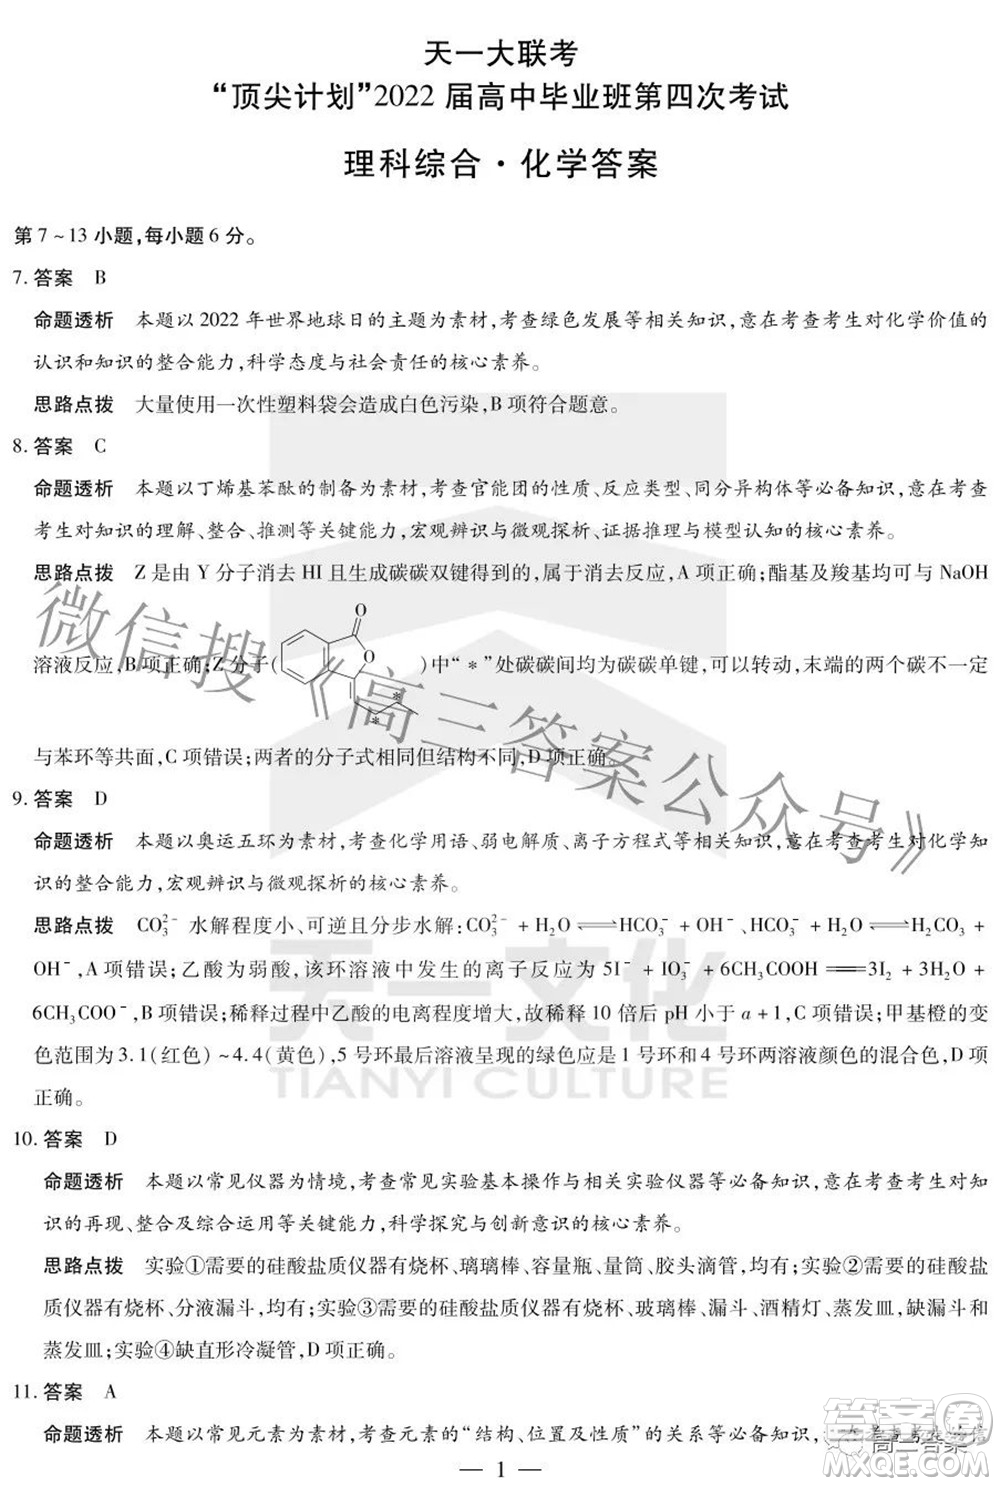 天一大联考
“顶尖计划”2022 届高中毕业班第四次考试
理科综合·化学答案
第 7 ~ 13 小题,每小题 6 分。
7. 答案 B
命题透析 本题以 2022 年世界地球日的主题为素材,考查绿色发展等相关知识,意在考查考生对化学价值的
认识和知识的整合能力,科学态度与社会责任的核心素养。
思路点拨 大量使用一次性塑料袋会造成白色污染,B 项符合题意。
8. 答案 C
命题透析 本题以丁烯基苯酞的制备为素材,考查官能团的性质、反应类型、同分异构体等必备知识,意在考查
考生对知识的理解、整合、推测等关键能力,宏观辨识与微观探析、证据推理与模型认知的核心素养。
思路点拨 Z 是由 Y 分子消去 HI 且生成碳碳双键得到的,属于消去反应,A 项正确;酯基及羧基均可与 NaOH
溶液反应,B 项正确;Z 分子( O O * * )中“ * ”处碳碳间均为碳碳单键,可以转动,末端的两个碳不一定
与苯环等共面,C 项错误;两者的分子式相同但结构不同,D 项正确。
9. 答案 D
命题透析 本题以奥运五环为素材,考查化学用语、弱电解质、离子方程式等相关知识,意在考查考生对化学知
识的整合能力,宏观辨识与微观探析的核心素养。
思路点拨 CO₃²⁻ 水解程度小、可逆且分步水解:CO₃²⁻ + H₂O ⇌ HCO₃⁻ + OH⁻、HCO₃⁻ + H₂O ⇌ H₂CO₃ +
OH⁻,A 项错误;乙酸为弱酸,该环溶液中发生的离子反应为 5I⁻ + IO₃⁻ + 6CH₃COOH ══ 3I₂ + 3H₂O +
6CH₃COO⁻,B 项错误;稀释过程中乙酸的电离程度增大,故稀释 10 倍后 pH 小于 a + 1,C 项错误;甲基橙的变
色范围为 3.1(红色) ~ 4.4(黄色),5 号环最后溶液呈现的绿色应是 1 号环和 4 号环两溶液颜色的混合色,D 项
正确。
10. 答案 D
命题透析 本题以常见仪器为情境,考查常见实验基本操作与相关实验仪器等必备知识,意在考查考生对知
识的再现、整合及综合运用等关键能力,科学探究与创新意识的核心素养。
思路点拨 实验①需要的硅酸盐质仪器有烧杯、玻璃棒、容量瓶、量筒、胶头滴管,均有;实验②需要的硅酸盐
质仪器有烧杯、分液漏斗,均有;实验③需要的硅酸盐质仪器有烧杯、玻璃棒、漏斗、酒精灯、蒸发皿,缺漏斗和
蒸发皿;实验④缺直形冷凝管,D 项正确。
11. 答案 A
命题透析 本题以常见元素为素材,考查元素的“结构、位置及性质”的关系等必备知识,
— 1 —
微信搜《高三答案公众号》
天一文化
TIANYI CULTURE
答案圈
高三答案